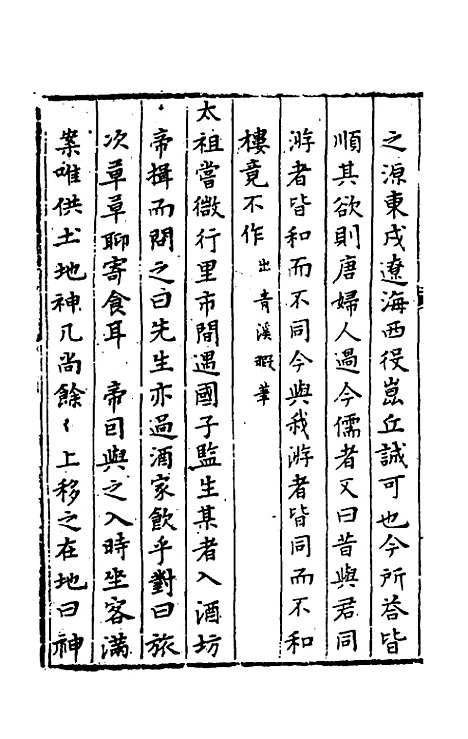 之源東戍遼海西役崑丘誠可也今所答皆
順其欲則唐婦人過今儒者又曰昔與君同
游者皆和而不同今與我游者皆同而不和
樓竟不作出青溪暇筆
太祖嘗微行里市間遇國子監生某者入酒坊
帝揖而問之曰先生亦過酒家飲乎對曰旅
次草草聊寄食耳 帝因與之入時坐客滿
案唯供土地神几尚餘〻上移之在地曰神